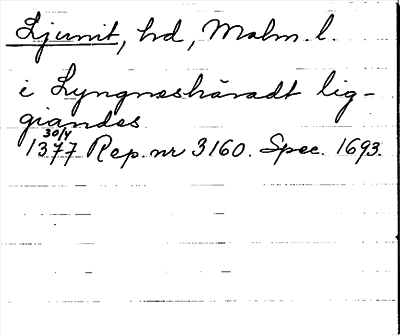 Ljunit, hd, Malm. l.
i Lyngnæshäradt lig-
giandes
30/4
1377 Rep. nr 3160. Spec. 1693.